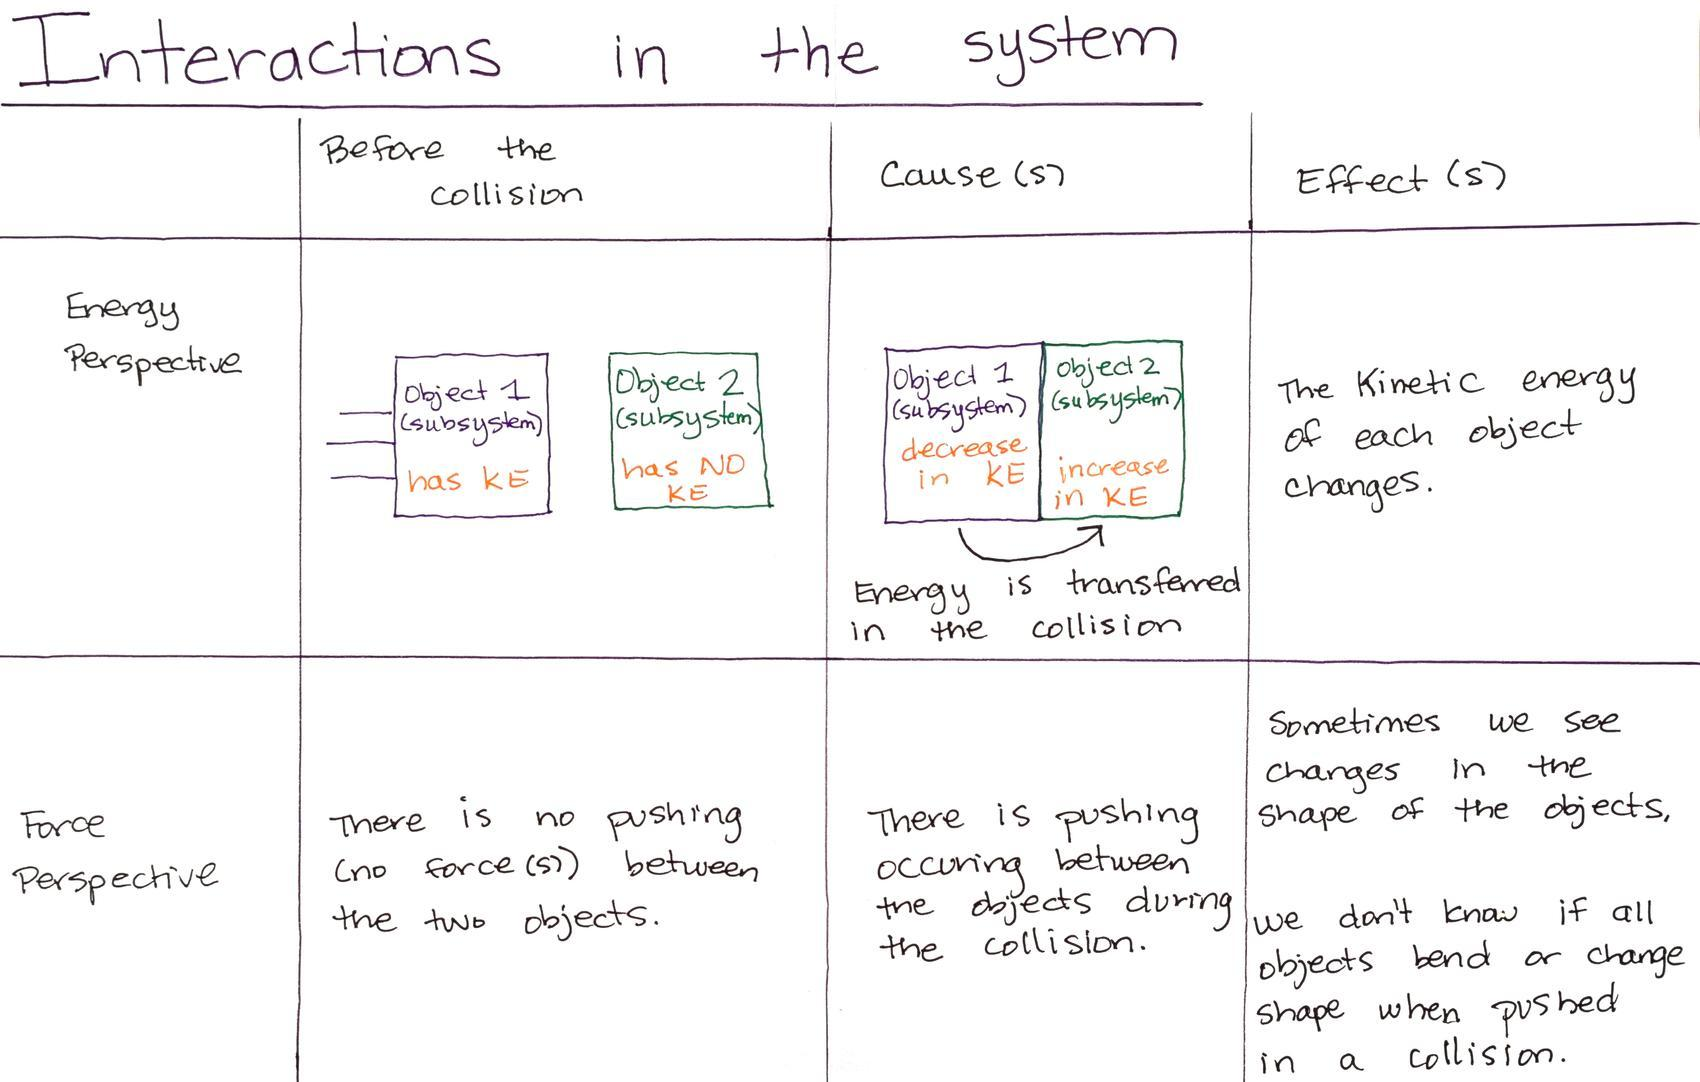 Interactions in the system
Before the
collision
Cause(s)
Effect(s)
Energy
Perspective
Object 1
(subsystem)
has KE
Object 2
(subsystem)
has NO
KE
Object 1
(subsystem)
decrease
in KE
Object 2
(subsystem)
increase
in KE
Energy is transferred
in the collision
The Kinetic energy
of each object
changes.
Force
Perspective
There is no pushing
(no force(s)) between
the two objects.
There is pushing
occuring between
the objects during
the collision.
Sometimes we see
changes in the
shape of the objects.
we don't know if all
objects bend or change
shape when pushed
in a collision.